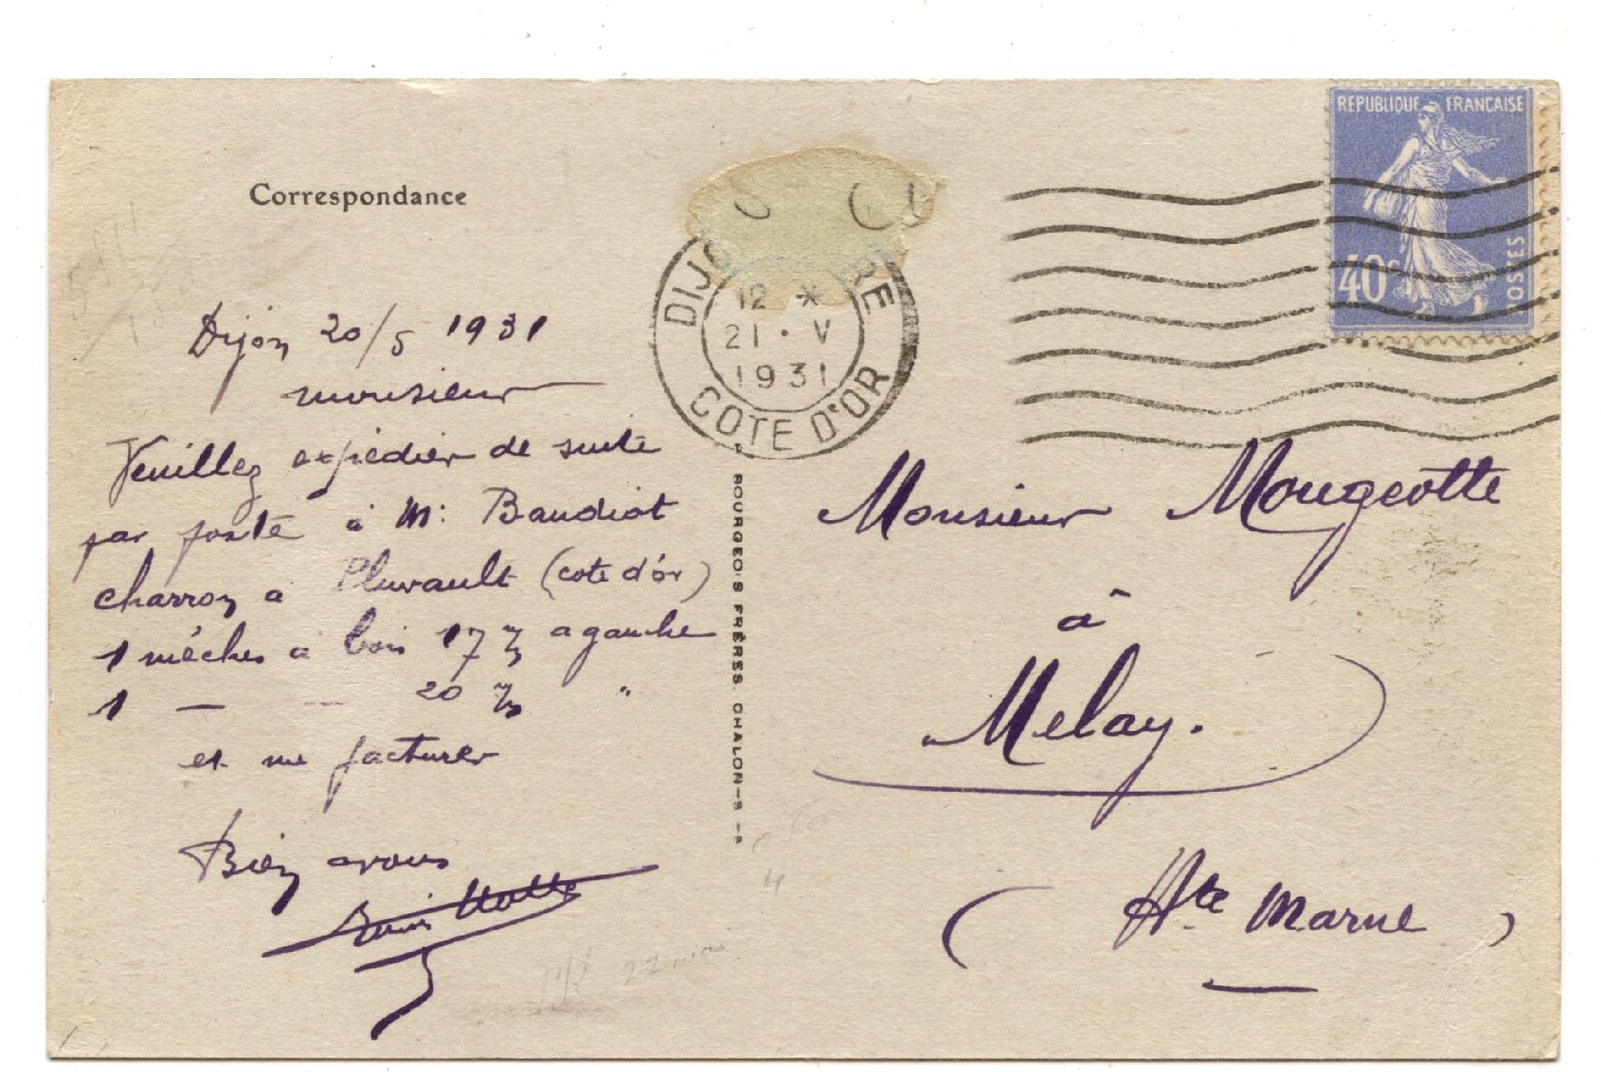 Correspondance
Dijon 20/5 1931
Monsieur
Veuillez expédier de suite
par poste à M: Baudiot
charron à Pluvault (cote d'or)
1 mèches à bois 17 m/m a gauche
1 — — 20 m/m "
et me facturer
Bien a vous
DIJ RE
12 *
21 • V
1931
COTE D'OR
BOURGEOIS FRÈRES. CHALON-S-S
REPUBLIQUE FRANÇAISE
40c
POSTES
Monsieur Mougeotte
à
Melay.
( Hte Marne )
22 mai